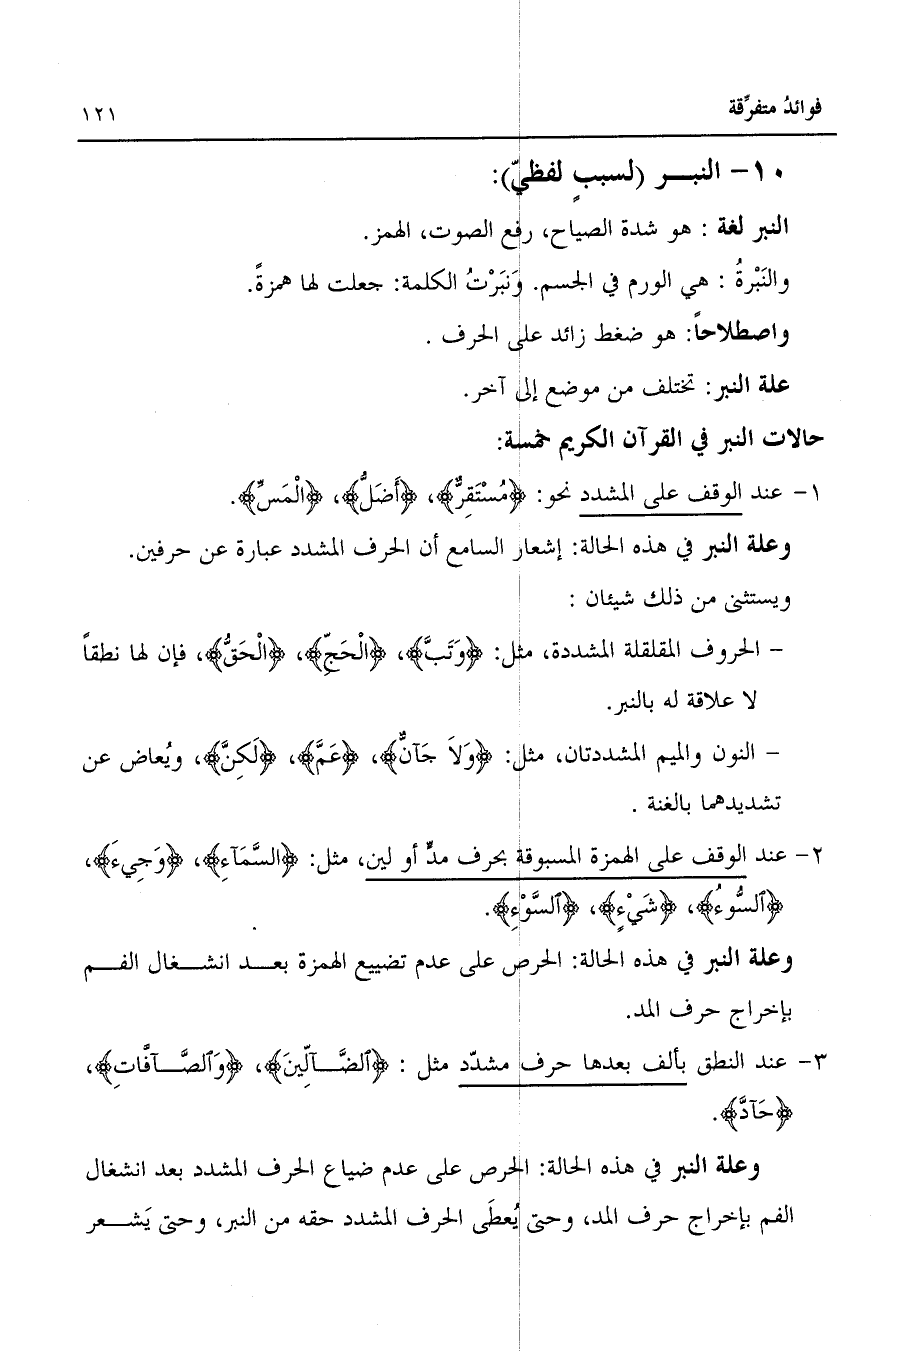 فوائدُ متفرِّقة ١٢١
١٠- النبـــر (لسببٍ لفظيّ):
النبر لغة : هو شدة الصياح، رفع الصوت، الهمز.
والنَبْرةُ : هي الورم في الجسم. وَنَبَرْتُ الكلمة: جعلت لها همزةً.
واصطلاحاً: هو ضغط زائد على الحرف .
علة النبر: تختلف من موضع إلى آخر.
حالات النبر في القرآن الكريم خمسة:
١- عند الوقف على المشدد نحو: ﴿مُسْتَقِرٌّ﴾، ﴿أَضَلُّ﴾، ﴿الْمَسِّ﴾.
وعلة النبر في هذه الحالة: إشعار السامع أن الحرف المشدد عبارة عن حرفين.
ويستثنى من ذلك شيئان :
- الحروف المقلقلة المشددة، مثل: ﴿وَتَبَّ﴾، ﴿الْحَجِّ﴾، ﴿الْحَقُّ﴾، فإن لها نطقاً
لا علاقة له بالنبر.
- النون والميم المشددتان، مثل: ﴿وَلاَ جَآنٌّ﴾، ﴿عَمَّ﴾، ﴿لَكِنَّ﴾، ويُعاض عن
تشديدهما بالغنة .
٢- عند الوقف على الهمزة المسبوقة بحرف مدٍّ أو لين، مثل: ﴿السَّمَآءِ﴾، ﴿وَجِيءَ﴾،
﴿ٱلسُّوءُ﴾، ﴿شَيْءٍ﴾، ﴿ٱلسَّوْءِ﴾.
وعلة النبر في هذه الحالة: الحرص على عدم تضييع الهمزة بعـــد انشـــغال الفـــم
بإخراج حرف المد.
٣- عند النطق بألف بعدها حرف مشدّد مثل : ﴿ٱلضَّـــآلِّينَ﴾، ﴿وَٱلصَّـــآفَّاتِ﴾،
﴿حَآدَّ﴾.
وعلة النبر في هذه الحالة: الحرص على عدم ضياع الحرف المشدد بعد انشغال
الفم بإخراج حرف المد، وحتى يُعطَى الحرف المشدد حقه من النبر، وحتى يَشـــعر